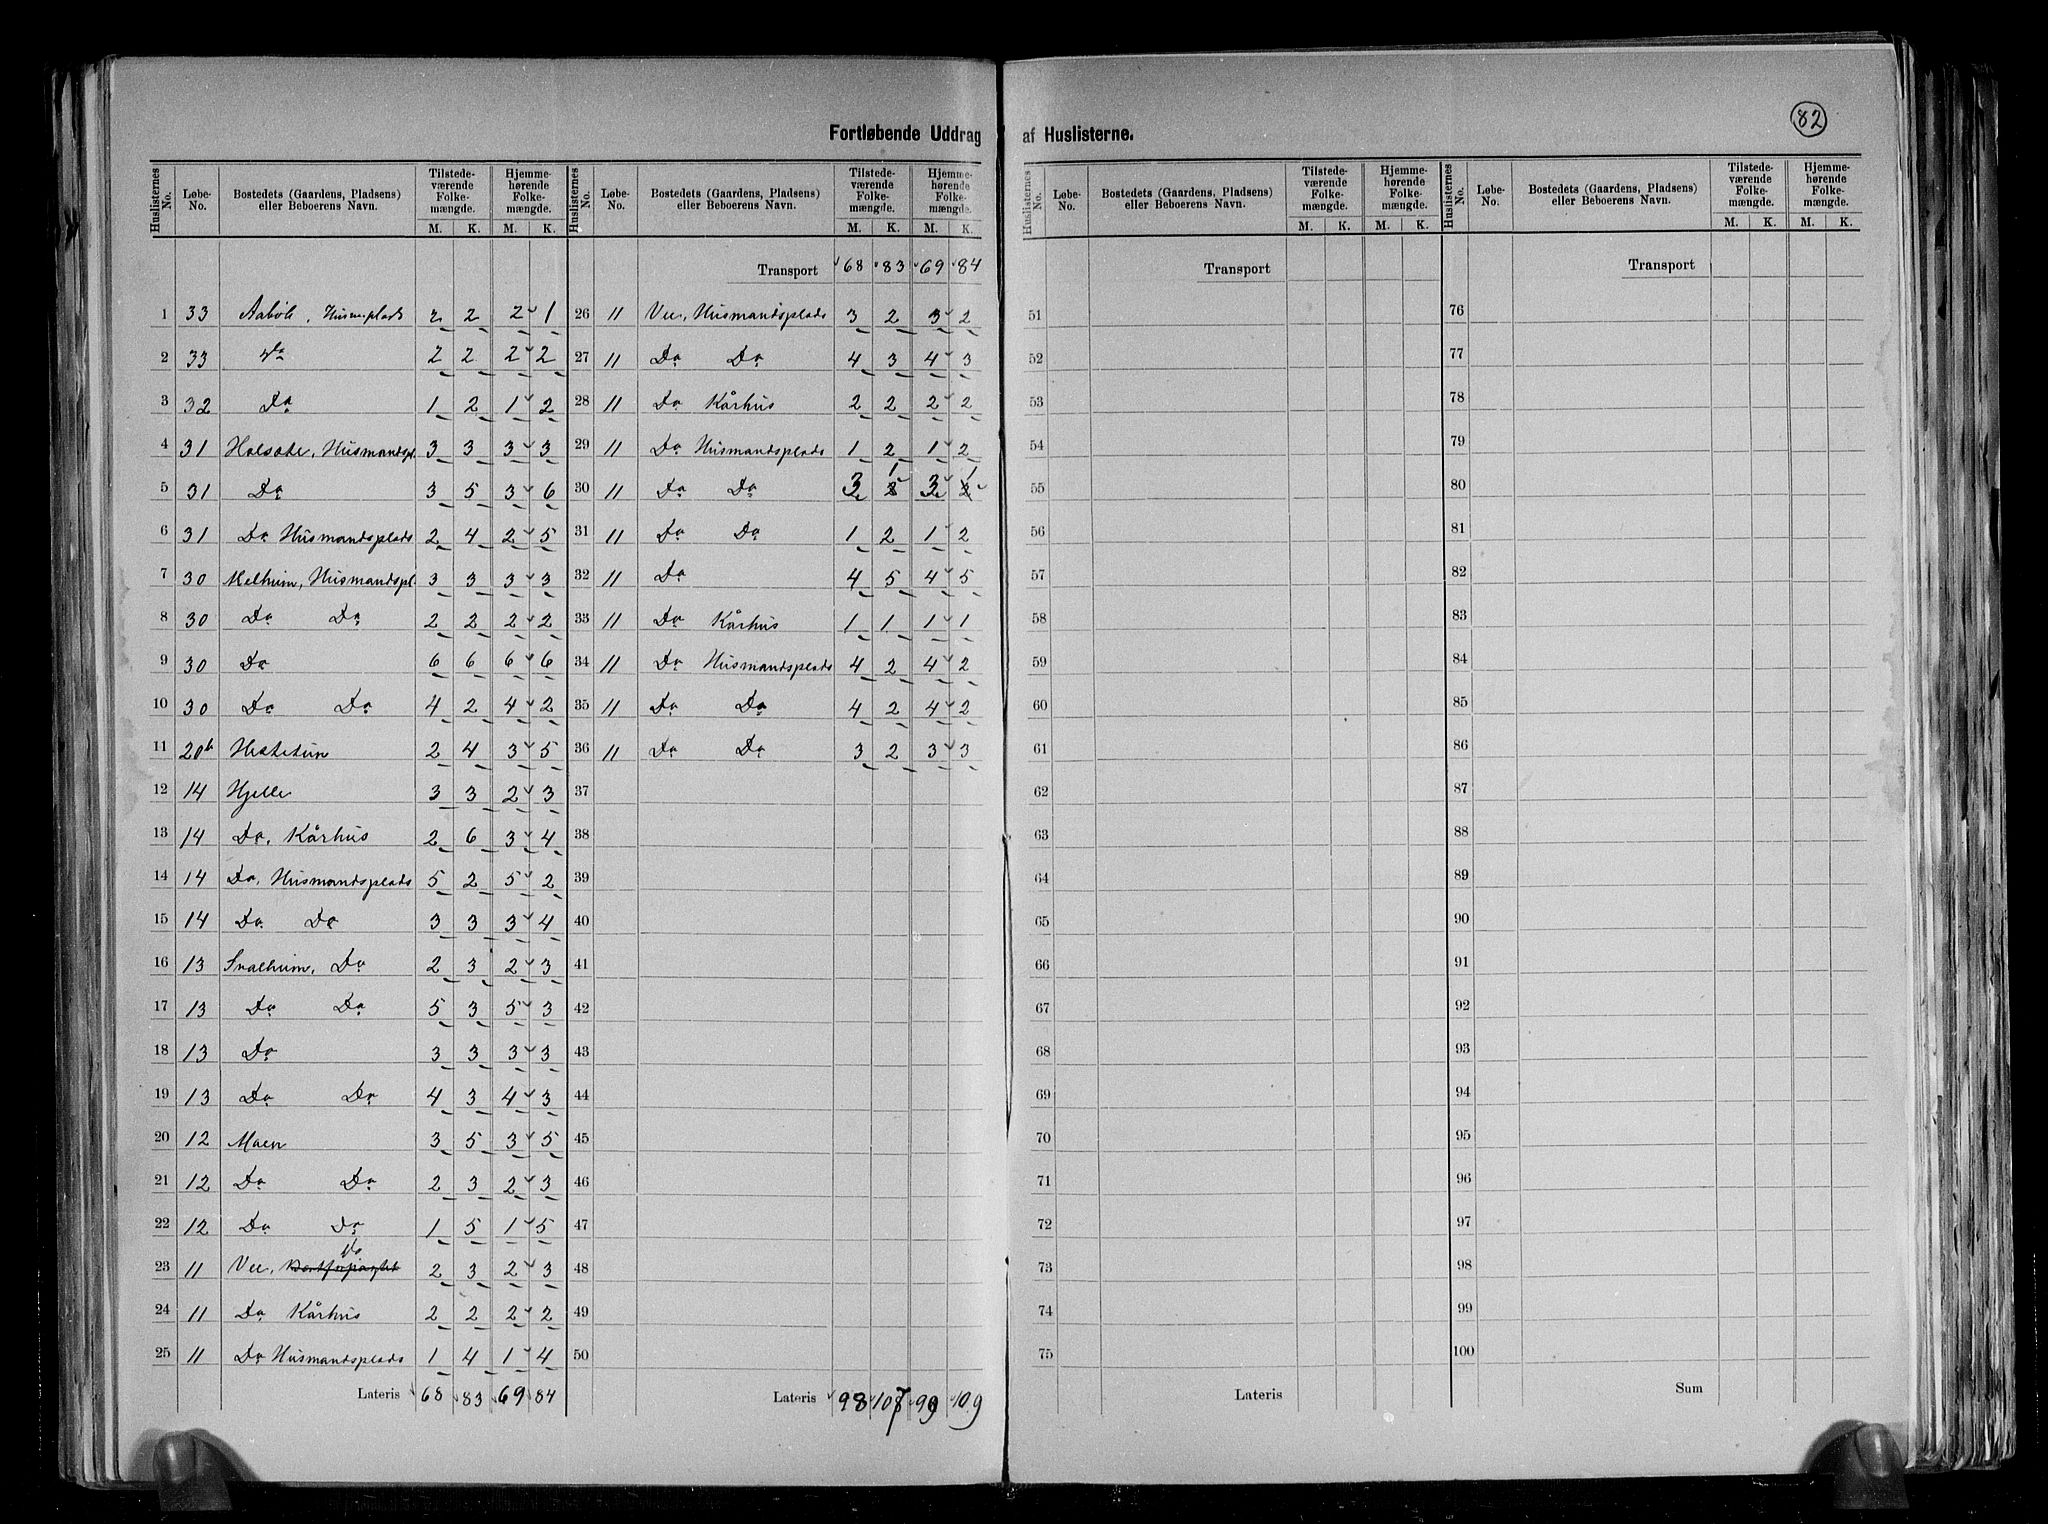 82
Fortløbende Uddrag af Huslisterne.
Huslisternes No. Løbe-No. Bostedets (Gaardens, Pladsens) eller Beboerens Navn. Tilstedeværende Folkemængde. Hjemmehørende Folkemængde.
M. K. M. K.
1 33 Aabøle, Husm.plads 2 2 2 1
2 33 Do 2 2 2 2
3 32 Do 1 2 1 2
4 31 Halsøte, Husmandspl. 3 3 3 3
5 31 Do 3 5 3 6
6 31 Do Husmandsplads 2 4 2 5
7 30 Melhum, Husmandspl. 3 3 3 3
8 30 Do Do 2 2 2 2
9 30 Do 6 6 6 6
10 30 Do Do 4 2 4 2
11 20b 2 4 3 5
12 14 Hjelle 3 3 2 3
13 14 Do, Kårhus 2 6 3 4
14 14 Do, Husmandsplads 5 2 5 2
15 14 Do Do 3 3 3 4
16 13 Svalhum, Do 2 3 2 3
17 13 Do Do 5 3 5 3
18 13 Do 3 3 3 3
19 13 Do Do 4 3 4 3
20 12 Moen 3 5 3 5
21 12 Do Do 2 3 2 3
22 12 Do Do 1 5 1 5
23 11 Vee, Do 2 3 2 3
24 11 Do Kårhus 2 2 2 2
25 11 Do Husmandsplads 1 4 1 4
Lateris 68 83 69 84
Huslisternes No. Løbe-No. Bostedets (Gaardens, Pladsens) eller Beboerens Navn. Tilstedeværende Folkemængde. Hjemmehørende Folkemængde.
M. K. M. K.
Transport 68 83 69 84
26 11 Vee, Husmandsplads 3 2 3 2
27 11 Do Do 4 3 4 3
28 11 Do Kårhus 2 2 2 2
29 11 Do Husmandsplads 1 2 1 2
30 11 Do Do 3 1 3 1
31 11 Do Do 1 2 1 2
32 11 Do 4 5 4 5
33 11 Do Kårhus 1 1 1 1
34 11 Do Husmandsplads 4 2 4 2
35 11 Do Do 4 2 4 2
36 11 Do Do 3 2 3 3
37
38
39
40
41
42
43
44
45
46
47
48
49
50
Lateris 98 107 99 109
Huslisternes No. Løbe-No. Bostedets (Gaardens, Pladsens) eller Beboerens Navn. Tilstedeværende Folkemængde. Hjemmehørende Folkemængde.
M. K. M. K.
Transport
51
52
53
54
55
56
57
58
59
60
61
62
63
64
65
66
67
68
69
70
71
72
73
74
75
Lateris
Huslisternes No. Løbe-No. Bostedets (Gaardens, Pladsens) eller Beboerens Navn. Tilstedeværende Folkemængde. Hjemmehørende Folkemængde.
M. K. M. K.
Transport
76
77
78
79
80
81
82
83
84
85
86
87
88
89
90
91
92
93
94
95
96
97
98
99
100
Sum